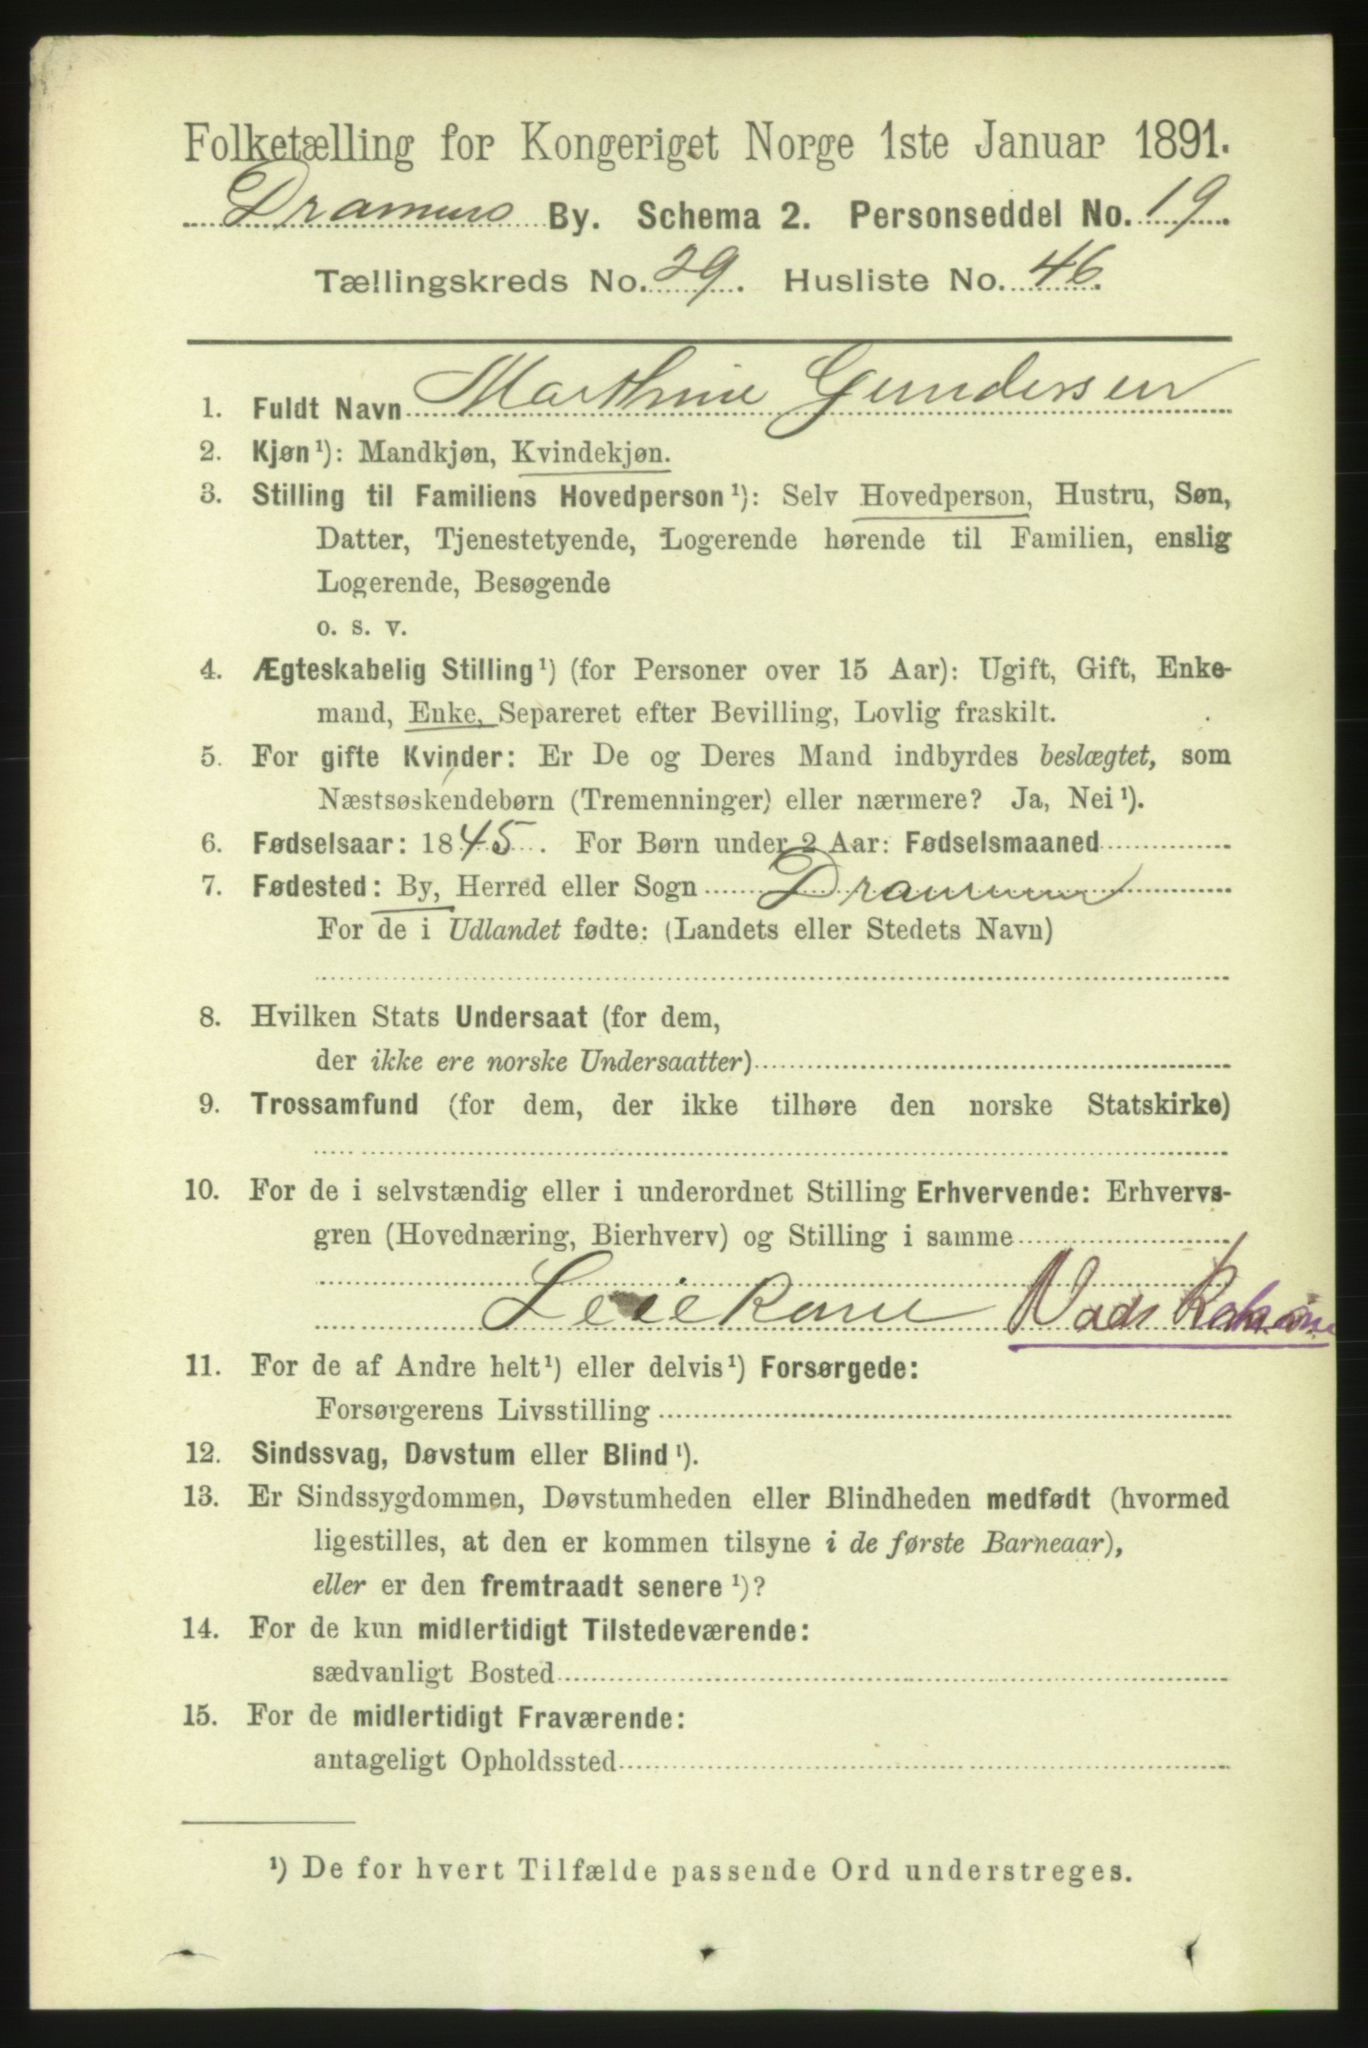 Folketælling for Kongeriget Norge 1ste Januar 1891.
Drammens By. Schema 2. Personseddel No. 19.
Tællingskreds No. 29. Husliste No. 46.
1. Fuldt Navn Marthine Gundersen
2. Kjøn¹): Mandkjøn, Kvindekjøn.
3. Stilling til Familiens Hovedperson¹): Selv Hovedperson, Hustru, Søn,
Datter, Tjenestetyende, Logerende hørende til Familien, enslig
Logerende, Besøgende
o. s. v.
4. Ægteskabelig Stilling¹) (for Personer over 15 Aar): Ugift, Gift, Enke-
mand, Enke, Separeret efter Bevilling, Lovlig fraskilt.
5. For gifte Kvinder: Er De og Deres Mand indbyrdes beslægtet, som
Næstsøskendebørn (Tremenninger) eller nærmere? Ja, Nei¹).
6. Fødselsaar: 1845. For Børn under 2 Aar: Fødselsmaaned
7. Fødested: By, Herred eller Sogn Drammen
For de i Udlandet fødte: (Landets eller Stedets Navn)
8. Hvilken Stats Undersaat (for dem,
der ikke ere norske Undersaatter)
9. Trossamfund (for dem, der ikke tilhøre den norske Statskirke)
10. For de i selvstændig eller i underordnet Stilling Erhvervende: Erhvervs-
gren (Hovednæring, Bierhverv) og Stilling i samme
Leiekone
11. For de af Andre helt¹) eller delvis¹) Forsørgede:
Forsørgerens Livsstilling
12. Sindssvag, Døvstum eller Blind¹).
13. Er Sindssygdommen, Døvstumheden eller Blindheden medfødt (hvormed
ligestilles, at den er kommen tilsyne i de første Barneaar),
eller er den fremtraadt senere¹)?
14. For de kun midlertidigt Tilstedeværende:
sædvanligt Bosted
15. For de midlertidigt Fraværende:
antageligt Opholdssted
¹) De for hvert Tilfælde passende Ord understreges.